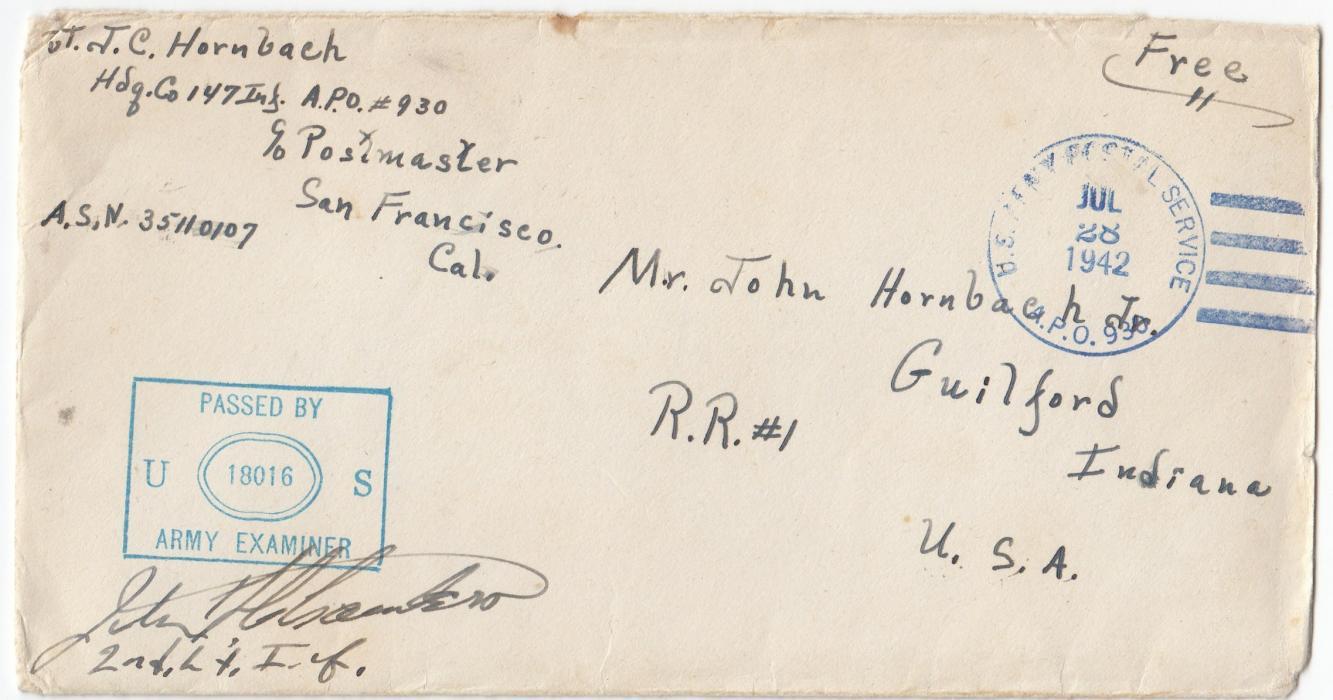 J.C. Hornbach
Hdq. Co 147 Inf. A.P.O. #930
c/o Postmaster
San Francisco.
Cal.
A.S.N. 35110107
Free
U.S. ARMY POSTAL SERVICE
JUL
28
1942
A.P.O. 930
Mr. John Hornbach Jr.
Guilford
R.R. #1
Indiana
U. S. A.
PASSED BY
U 18016 S
ARMY EXAMINER
John
2nd. Lt. Inf.